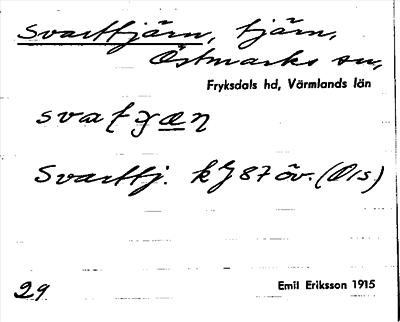 Svarttjärn, tjärn,
Östmarks sn,
Fryksdals hd, Värmlands län
Svarttj. 87 öv. (Ols)
29
Emil Eriksson 1915